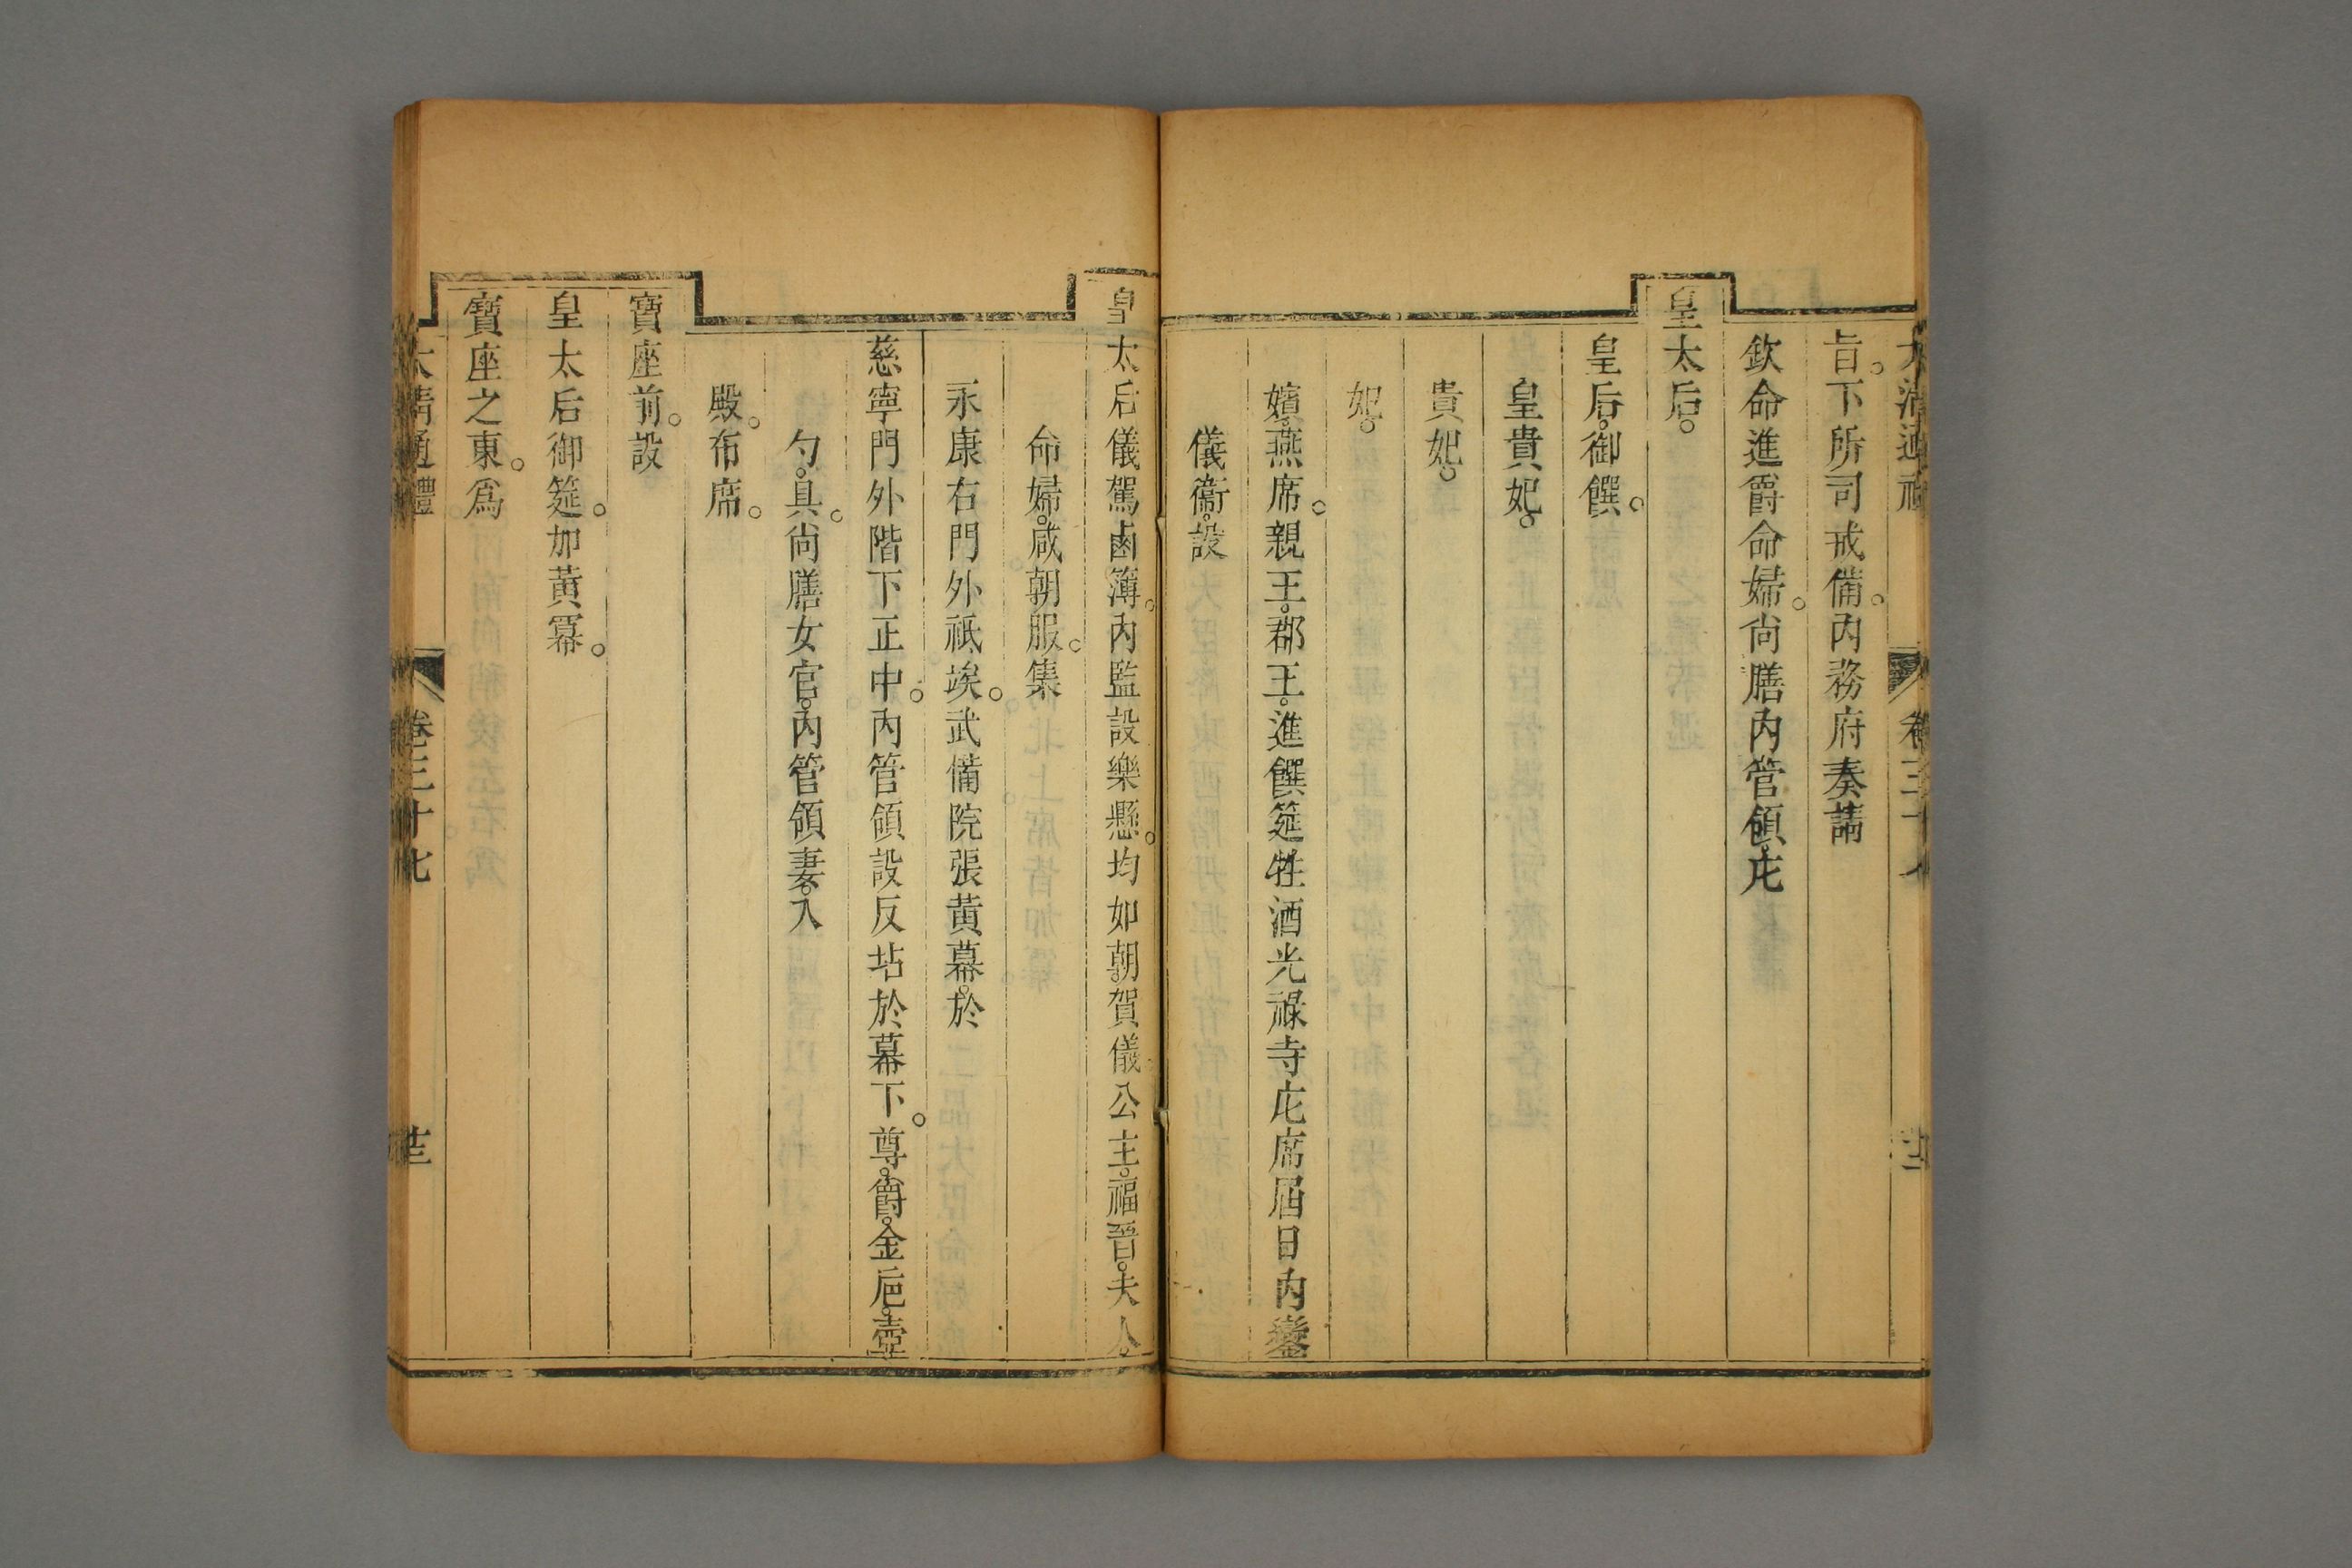 大清通禮 卷三十七
旨。下所司戒備。內務府奏請
欽命進爵命婦。尙膳內管領。庀
皇太后。
皇后。御饌。
皇貴妃。
貴妃。
妃。
嬪。燕席。親王。郡王。進饌筵牲酒光祿寺庀席屆日內鑾
儀衞。設
皇太后儀駕鹵簿。內監設樂懸。均如朝賀儀公主。福晉。夫人。
命婦。咸朝服。集
永康右門外祗竢。武備院張黃幕。於
慈寧門外階下正中。內管領設反坫於幕下。尊。爵。金巵。壺
勺。具。尙膳女官。內管領妻。入
殿。布席。
寶座前。設
皇太后御筵。加黃冪。
寶座之東。爲
大清通禮 卷三十七